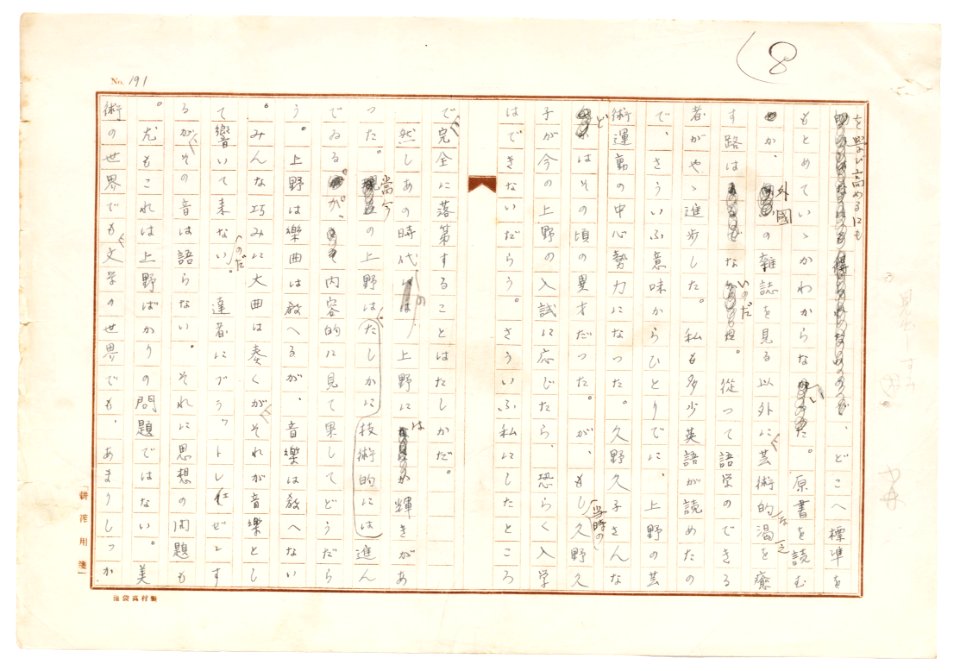 8
No. 191
を学び論めるにも
、どこへ標準を
もとめていゝかわからない。原書を読む
か、外國の雑誌を見る以外に藝術的な渇を療
す路はないのだ。従って語学のできる
者がやゝ進歩した。私も多少英語が読めたの
で、さういふ意味からひとりでに、上野の芸
術運動の中心勢力になった。久野久子さんな
どはその頃の異才だった。が、もし当時の久野久
子が今の上野の入試に応じたら、恐らく入学
はできないだらう。さういふ私にしたところ
で、完全に落第することはたしかだ。
然しあの時代の上野には輝きがあ
った。當今の上野は、たしかに技術的には進ん
でゐるが、内容的に見て果してどうだら
う。上野は樂曲は教へるが、音樂は教へない
。みんな巧みに大曲は奏くが、それが音樂とし
て響いて来ないのだ。達者に
るが、その音は語らない。それに思想の問題も
。尤もこれは上野ばかりの問題ではない。美
術の世界でも、文学の世界でも、あまりしっか